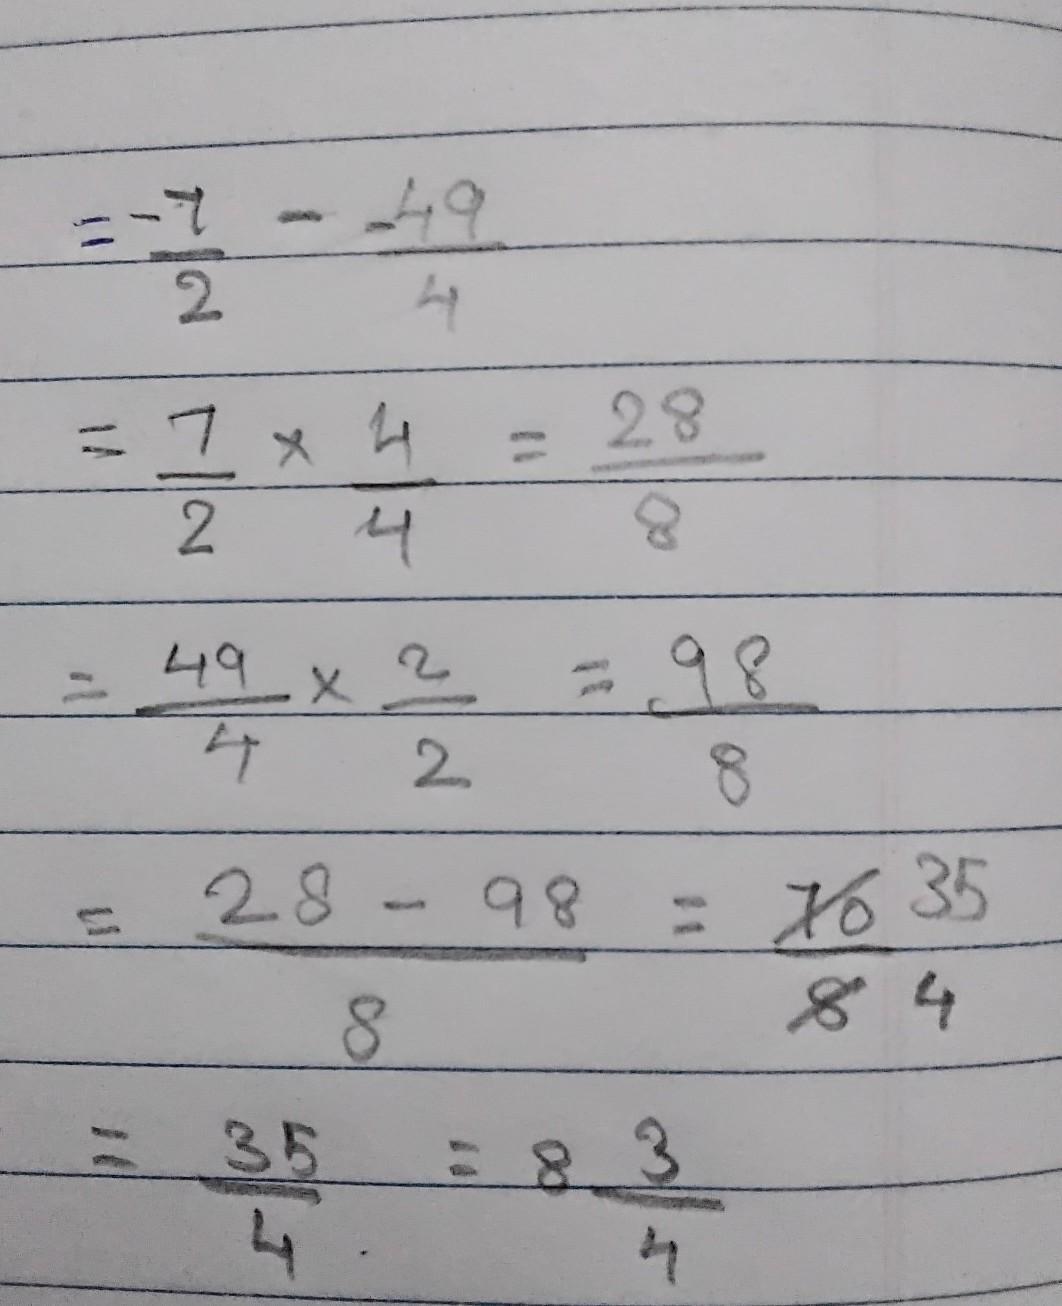 = -7/2 - -49/4
= 7/2 × 4/4 = 28/8
= 49/4 × 2/2 = 98/8
= 28 - 98/8 = 70/8 35/4
= 35/4 = 8 3/4